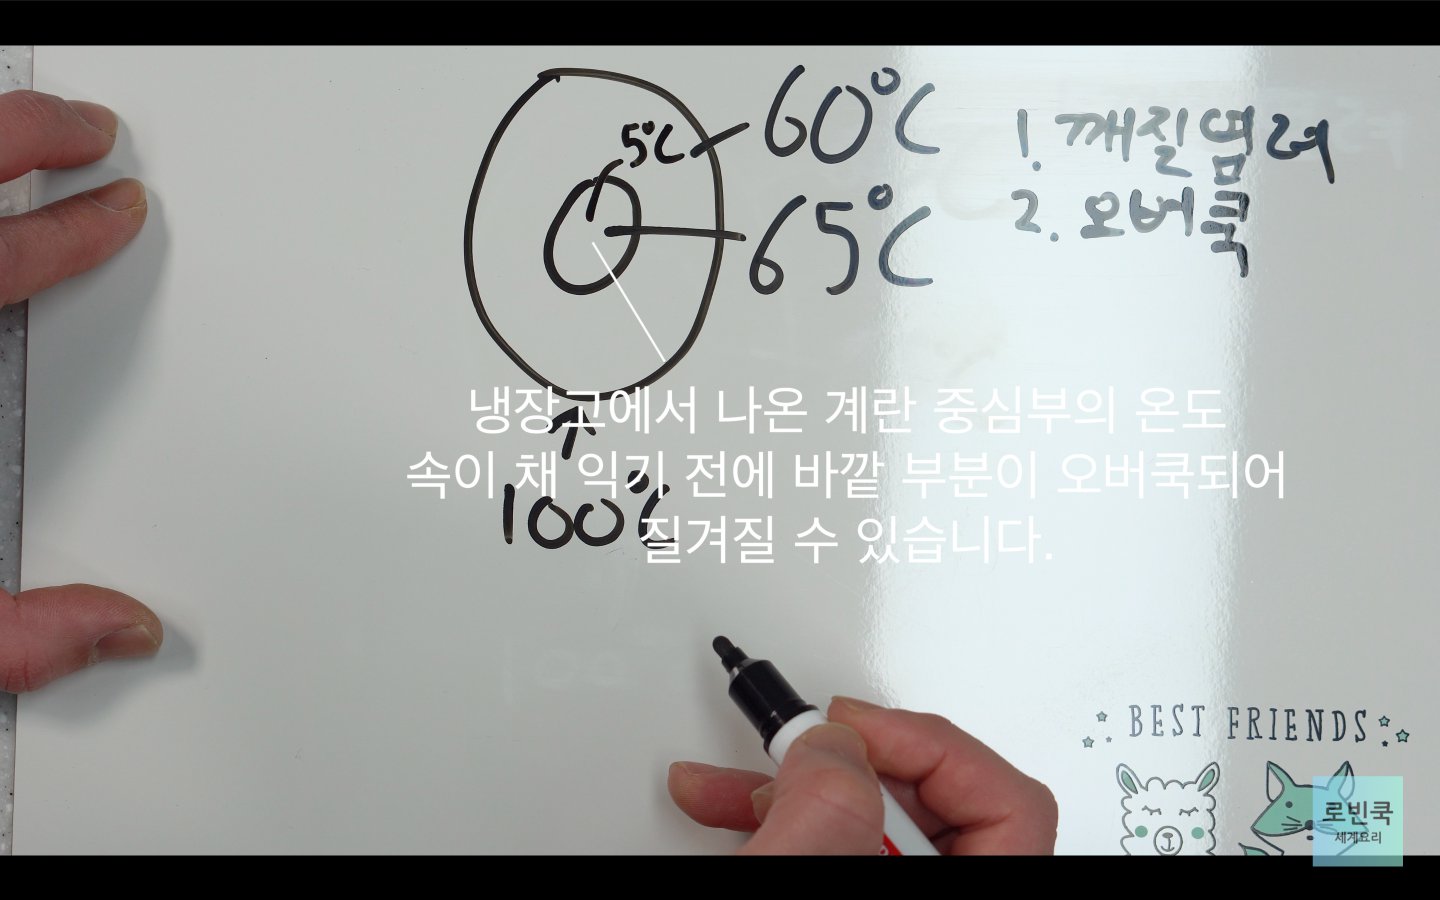 5°C
60°C
65°C
1. 깨질염려
2. 오버쿡
냉장고에서 나온 계란 중심부의 온도
속이 채 익기 전에 바깥 부분이 오버쿡되어
질겨질 수 있습니다.
100°C
BEST FRIENDS
로빈쿡
세계요리